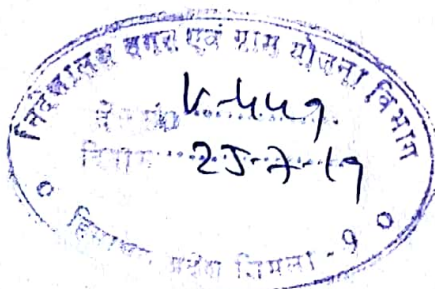 निदेशालय नगर एवं ग्राम योजना विभाग
दिनांक 25-7-19
हिमाचल प्रदेश शिमला - 9